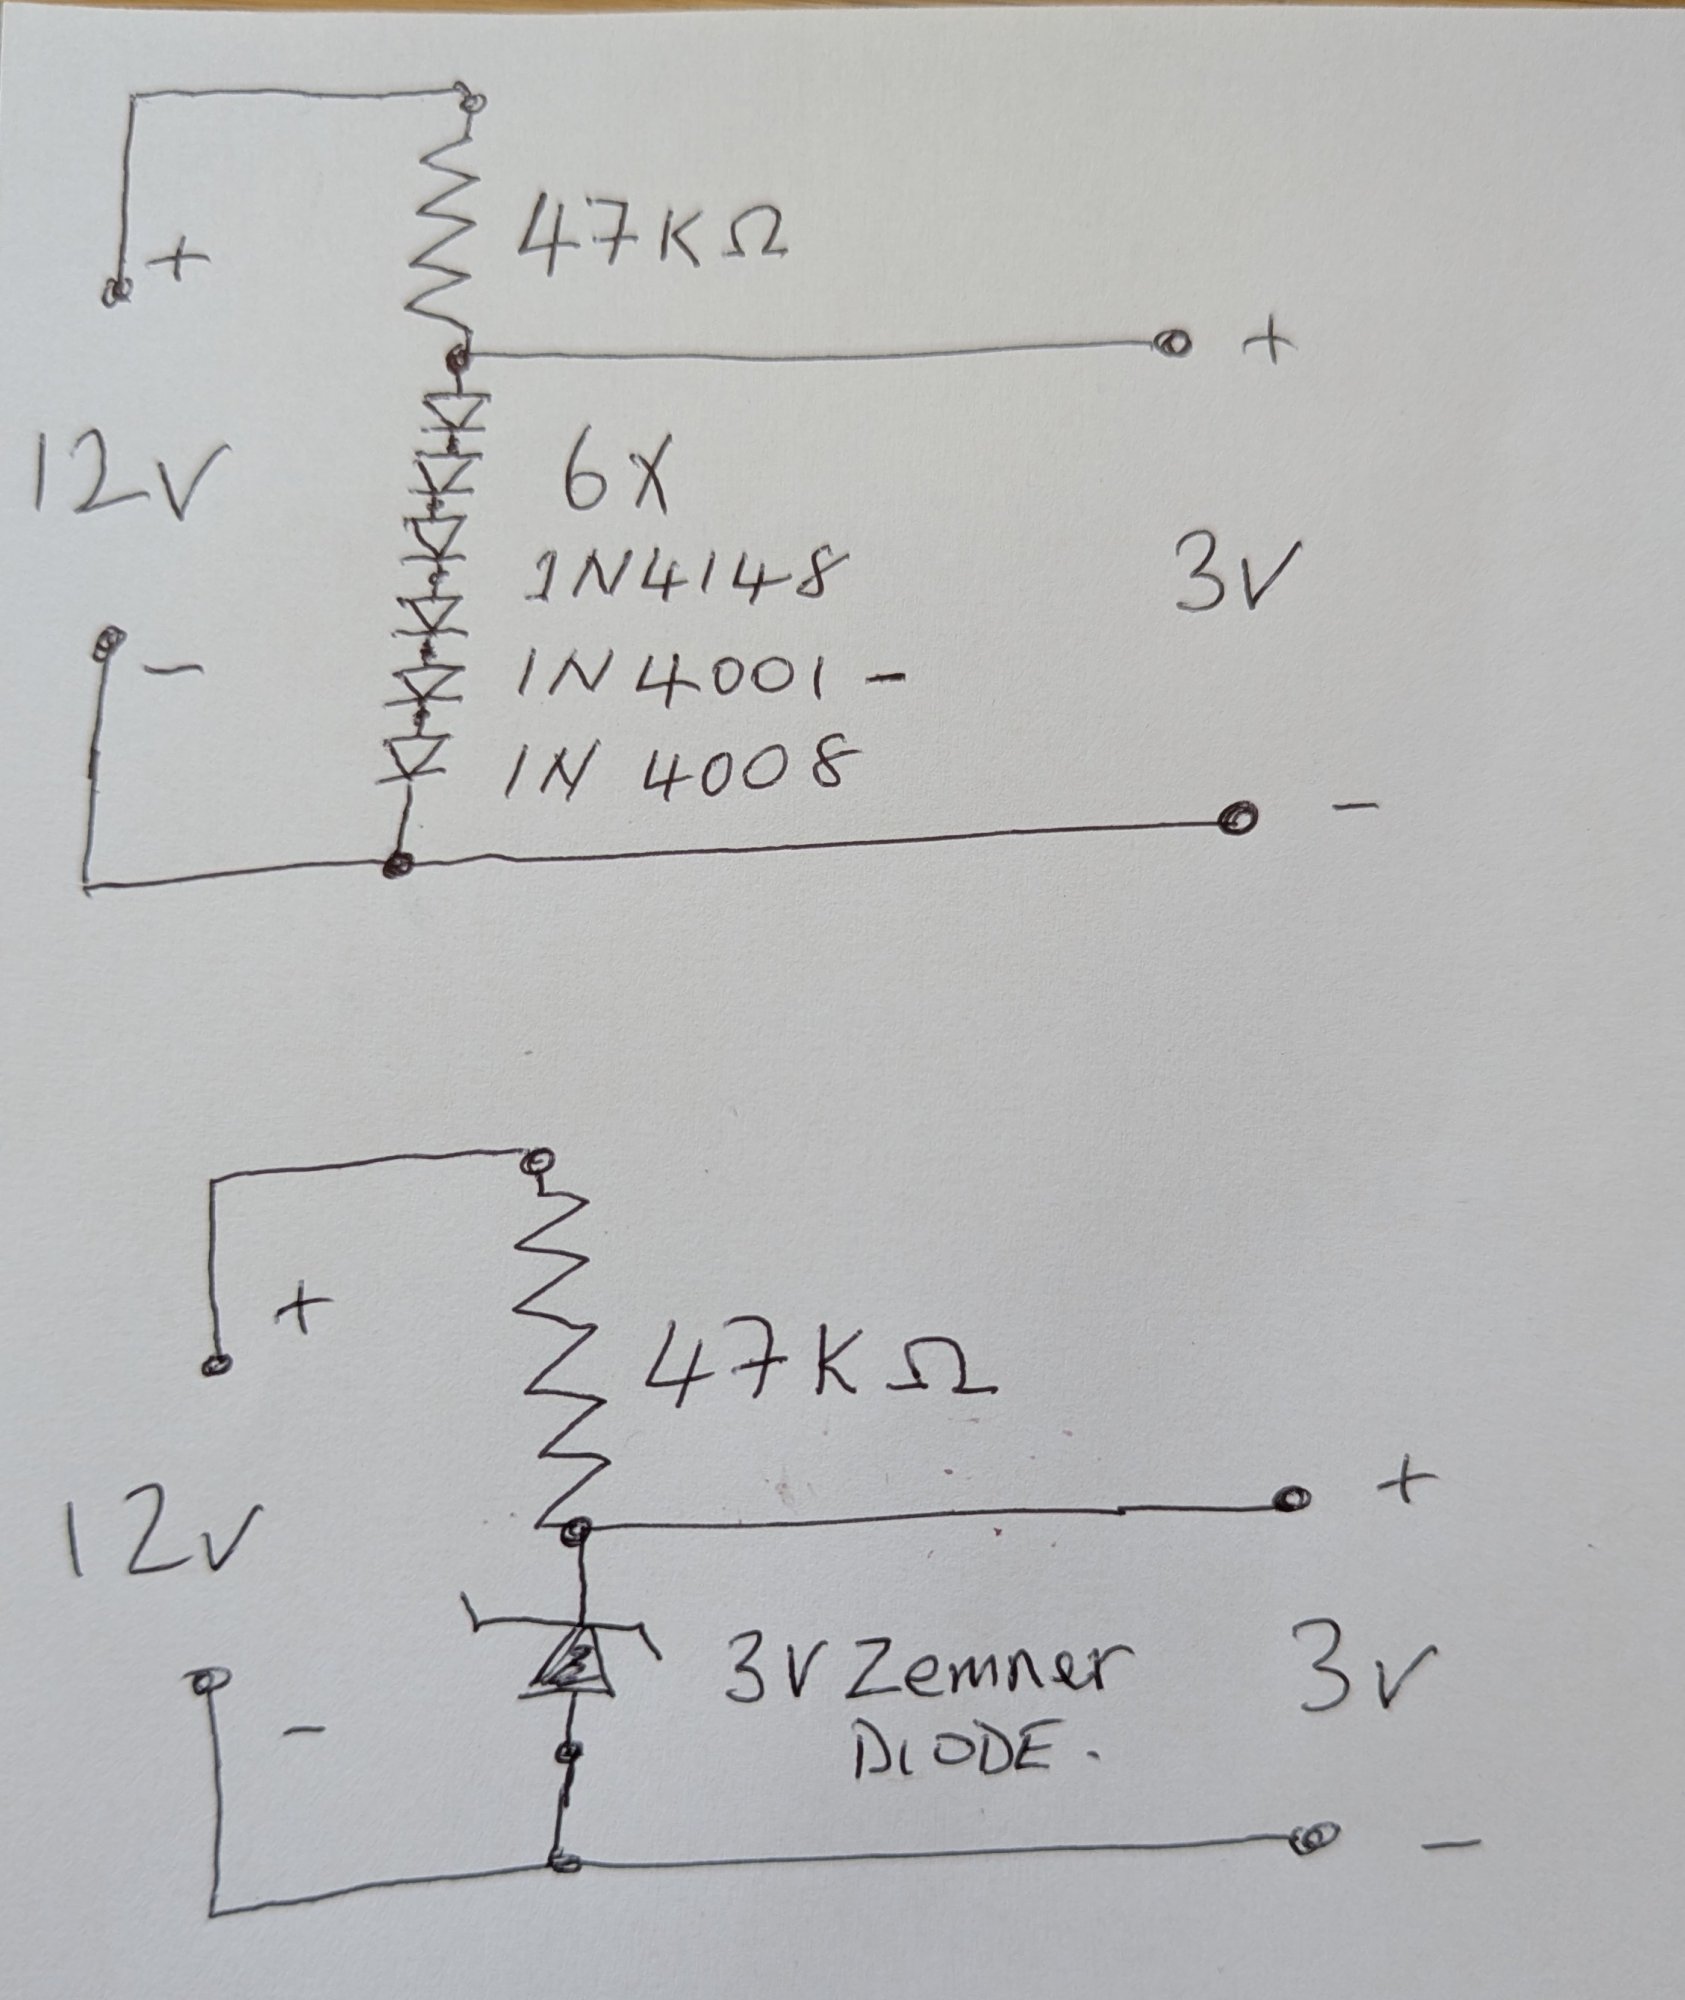 47KΩ
+
+
12V
6X
1N4148
3V
-
1N4001-
1N4008
-
+
47KΩ
+
12V
3V Zemner
3V
DIODE.
-
-